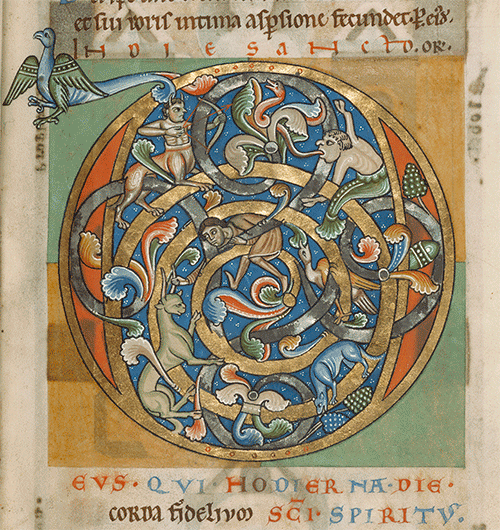 et sui roris intima aspsione fecundet.
IN DIE SANCTO. OR.
D
EVS · QVI · HODIERNA · DIE ·
corda fidelium SCI SPIRITV.